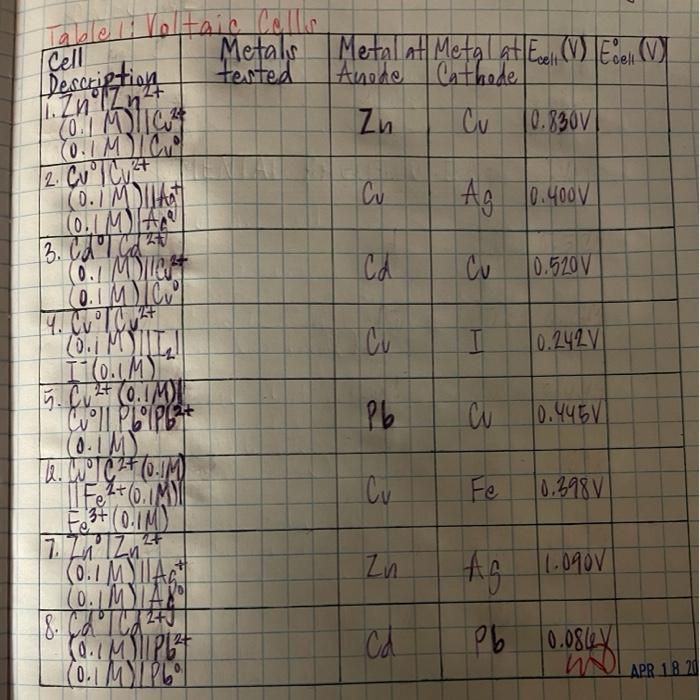 Table 1: Voltaic Cells
Cell Description | Metals tested | Metal at Anode | Metal at Cathode | Ecell (V) | E°cell (V)
1. Zn⁰|Zn²⁺
(0.1 M)||Cu²⁺
(0.1 M)|Cu⁰
Zn Cu 0.830V
2. Cu⁰|Cu²⁺
(0.1 M)||Ag⁺
(0.1 M)|Ag⁰
Cu Ag 0.400V
3. Cd⁰|Cd²⁺
(0.1 M)||Cu²⁺
(0.1 M)|Cu⁰
Cd Cu 0.520V
4. Cu⁰|Cu²⁺
(0.1 M)||I₂|
I⁻(0.1 M)
Cu I 0.242V
5. Cu²⁺(0.1M)|
Cu⁰||Pb⁰|Pb²⁺
(0.1 M)
Pb Cu 0.445V
6. Cu⁰|C²⁺(0.1M)
||Fe²⁺(0.1M)|
Fe³⁺(0.1M)
Cu Fe 0.398V
7. Zn⁰|Zn²⁺
(0.1 M)||Ag⁺
(0.1 M)|Ag⁰
Zn Ag 1.090V
8. Cd⁰|Cd²⁺
(0.1 M)||Pb²⁺
(0.1 M)|Pb⁰
Cd Pb
APR 18 20